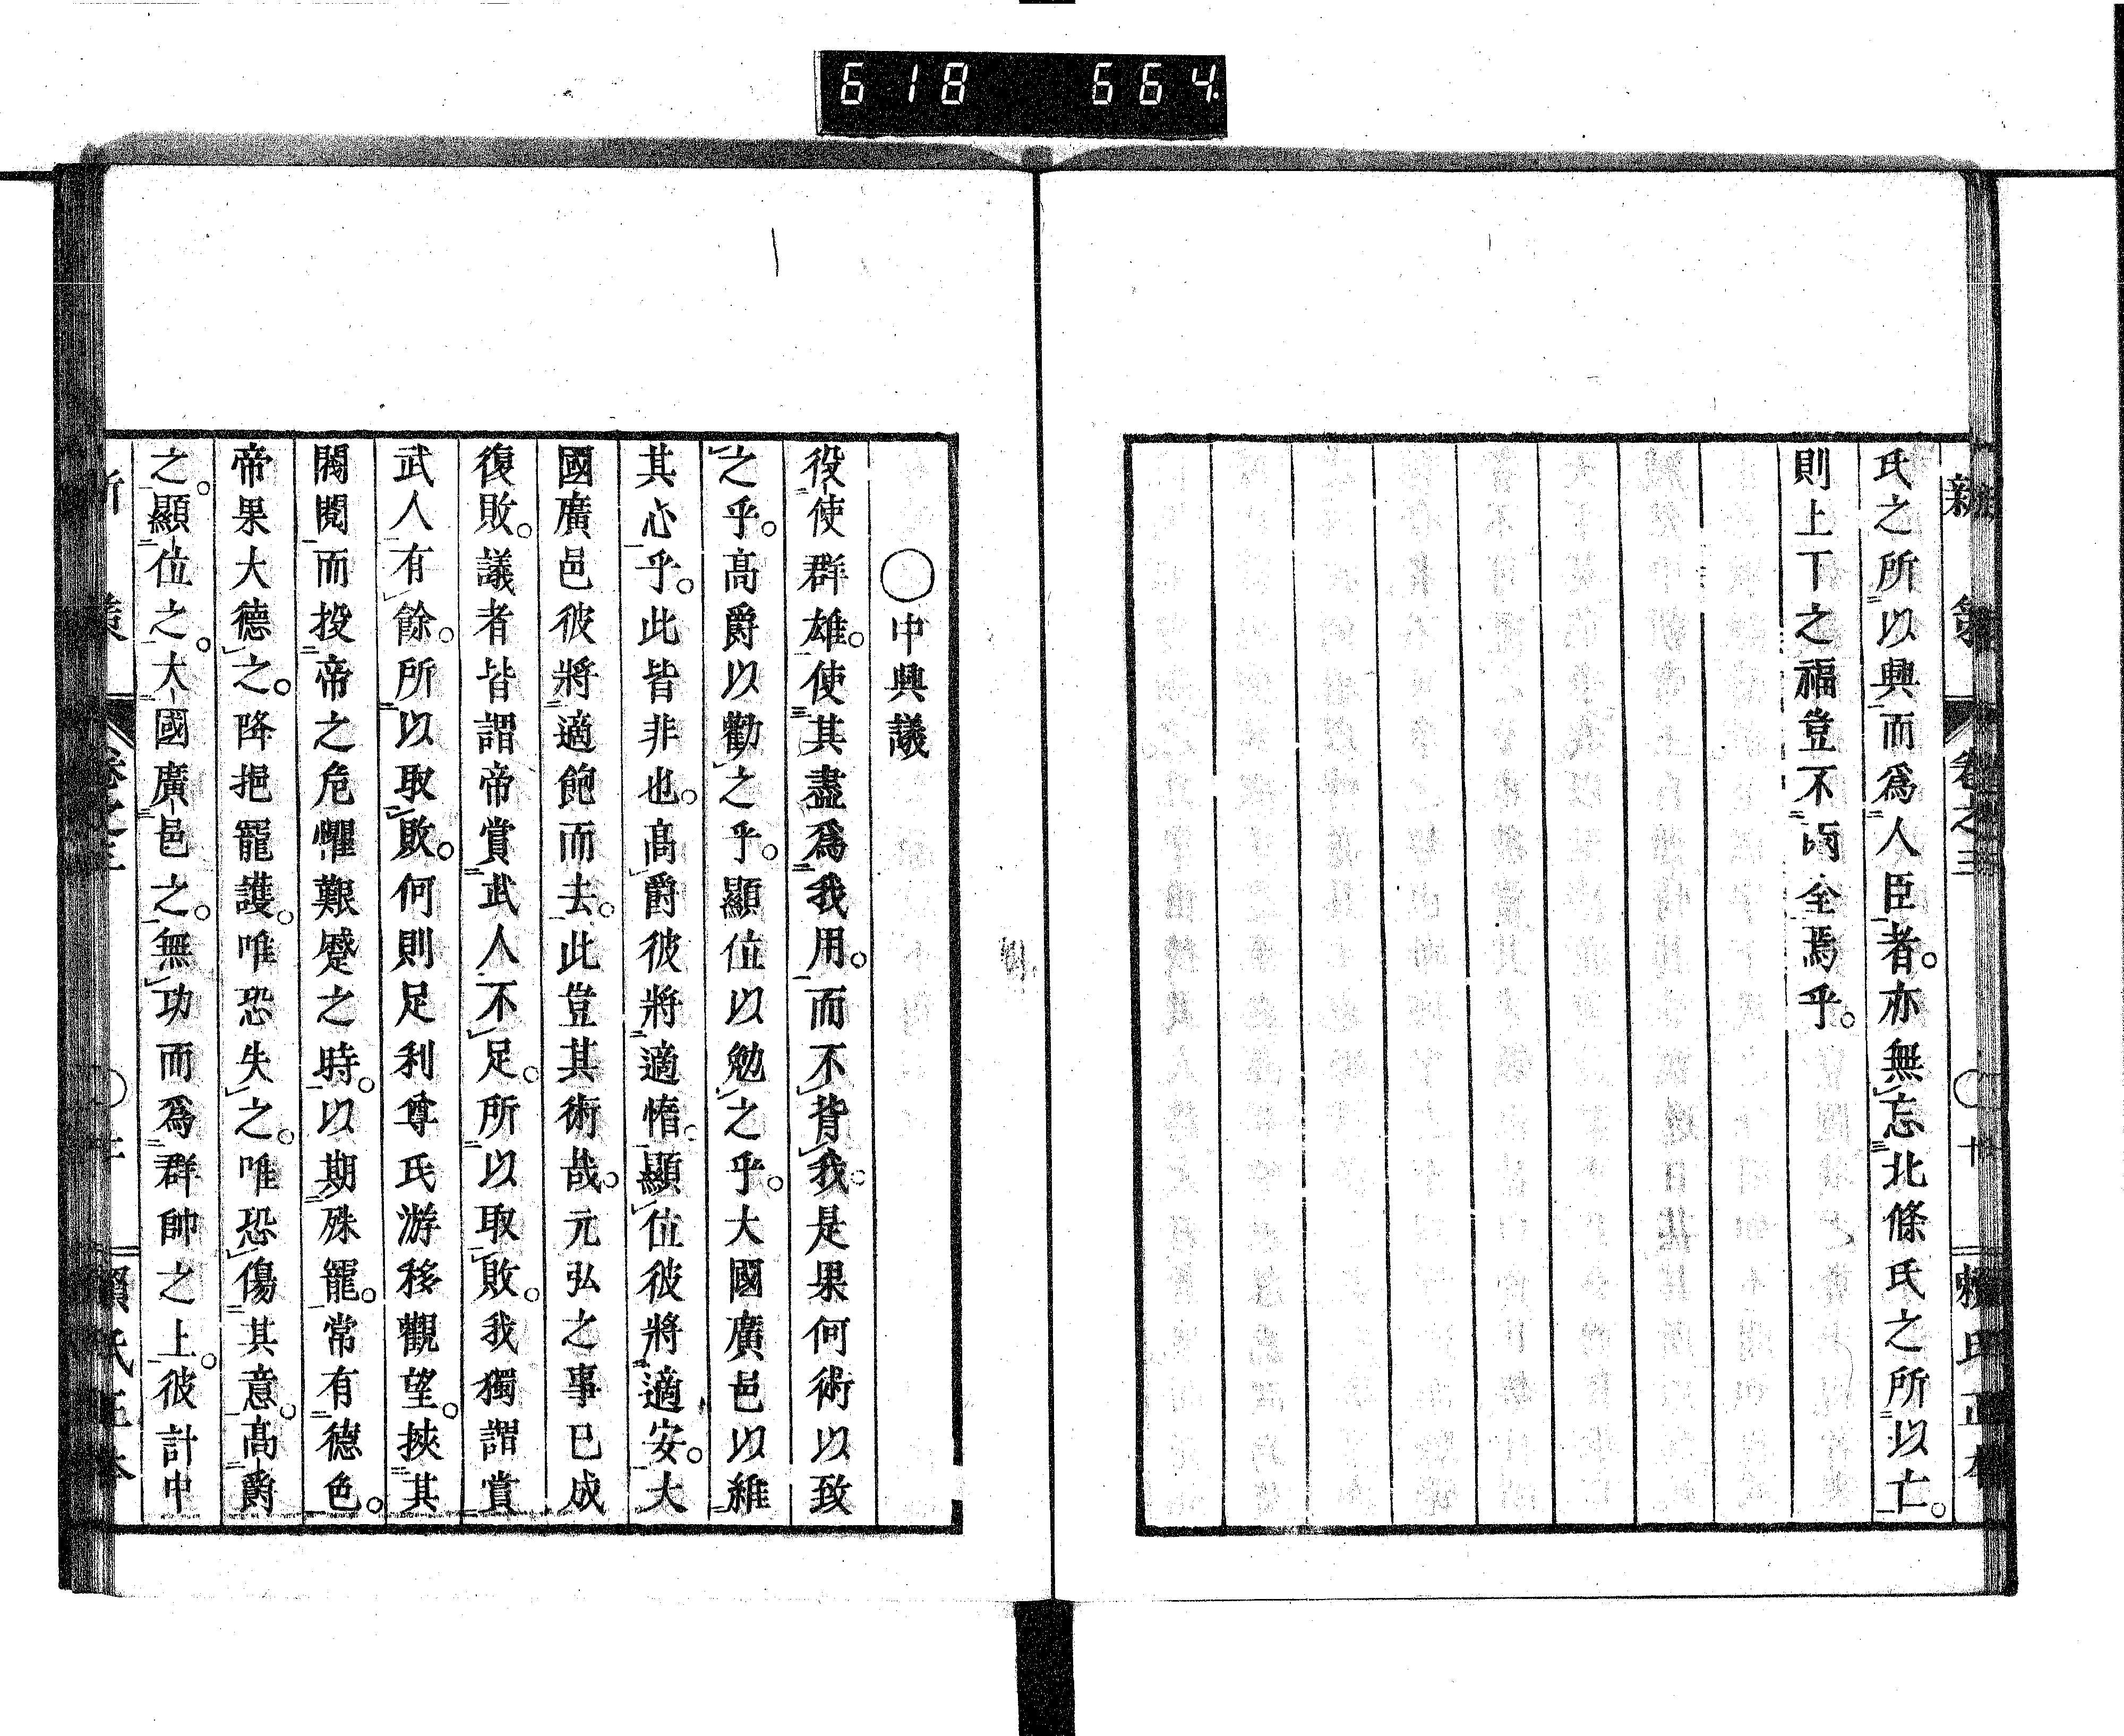 618 664
新策 卷之三 〇十 賴氏正本
氏之所以興而爲人臣者。亦無忘北條氏之所以亡。
則上下之福豈不兩全焉乎。
〇中興議
役使群雄。使其盡爲我用。而不背我。是果何術以致
之乎。高爵以勸之乎。顯位以勉之乎。大國廣邑以維
其心乎。此皆非也。高爵彼將適惰。顯位彼將適安。大
國廣邑彼將適飽而去。此豈其術哉。元弘之事已成
復敗。議者皆謂帝賞武人不足。所以取敗。我獨謂賞
武人有餘。所以取敗。何則足利尊氏游移觀望。挾其
閥閱而投帝之危懼艱蹙之時。以期殊寵。常有德色。
帝果大德之。降挹寵護。唯恐失之。唯恐傷其意。高爵
之。顯位之。大國廣邑之。無功而爲群帥之上。彼計中